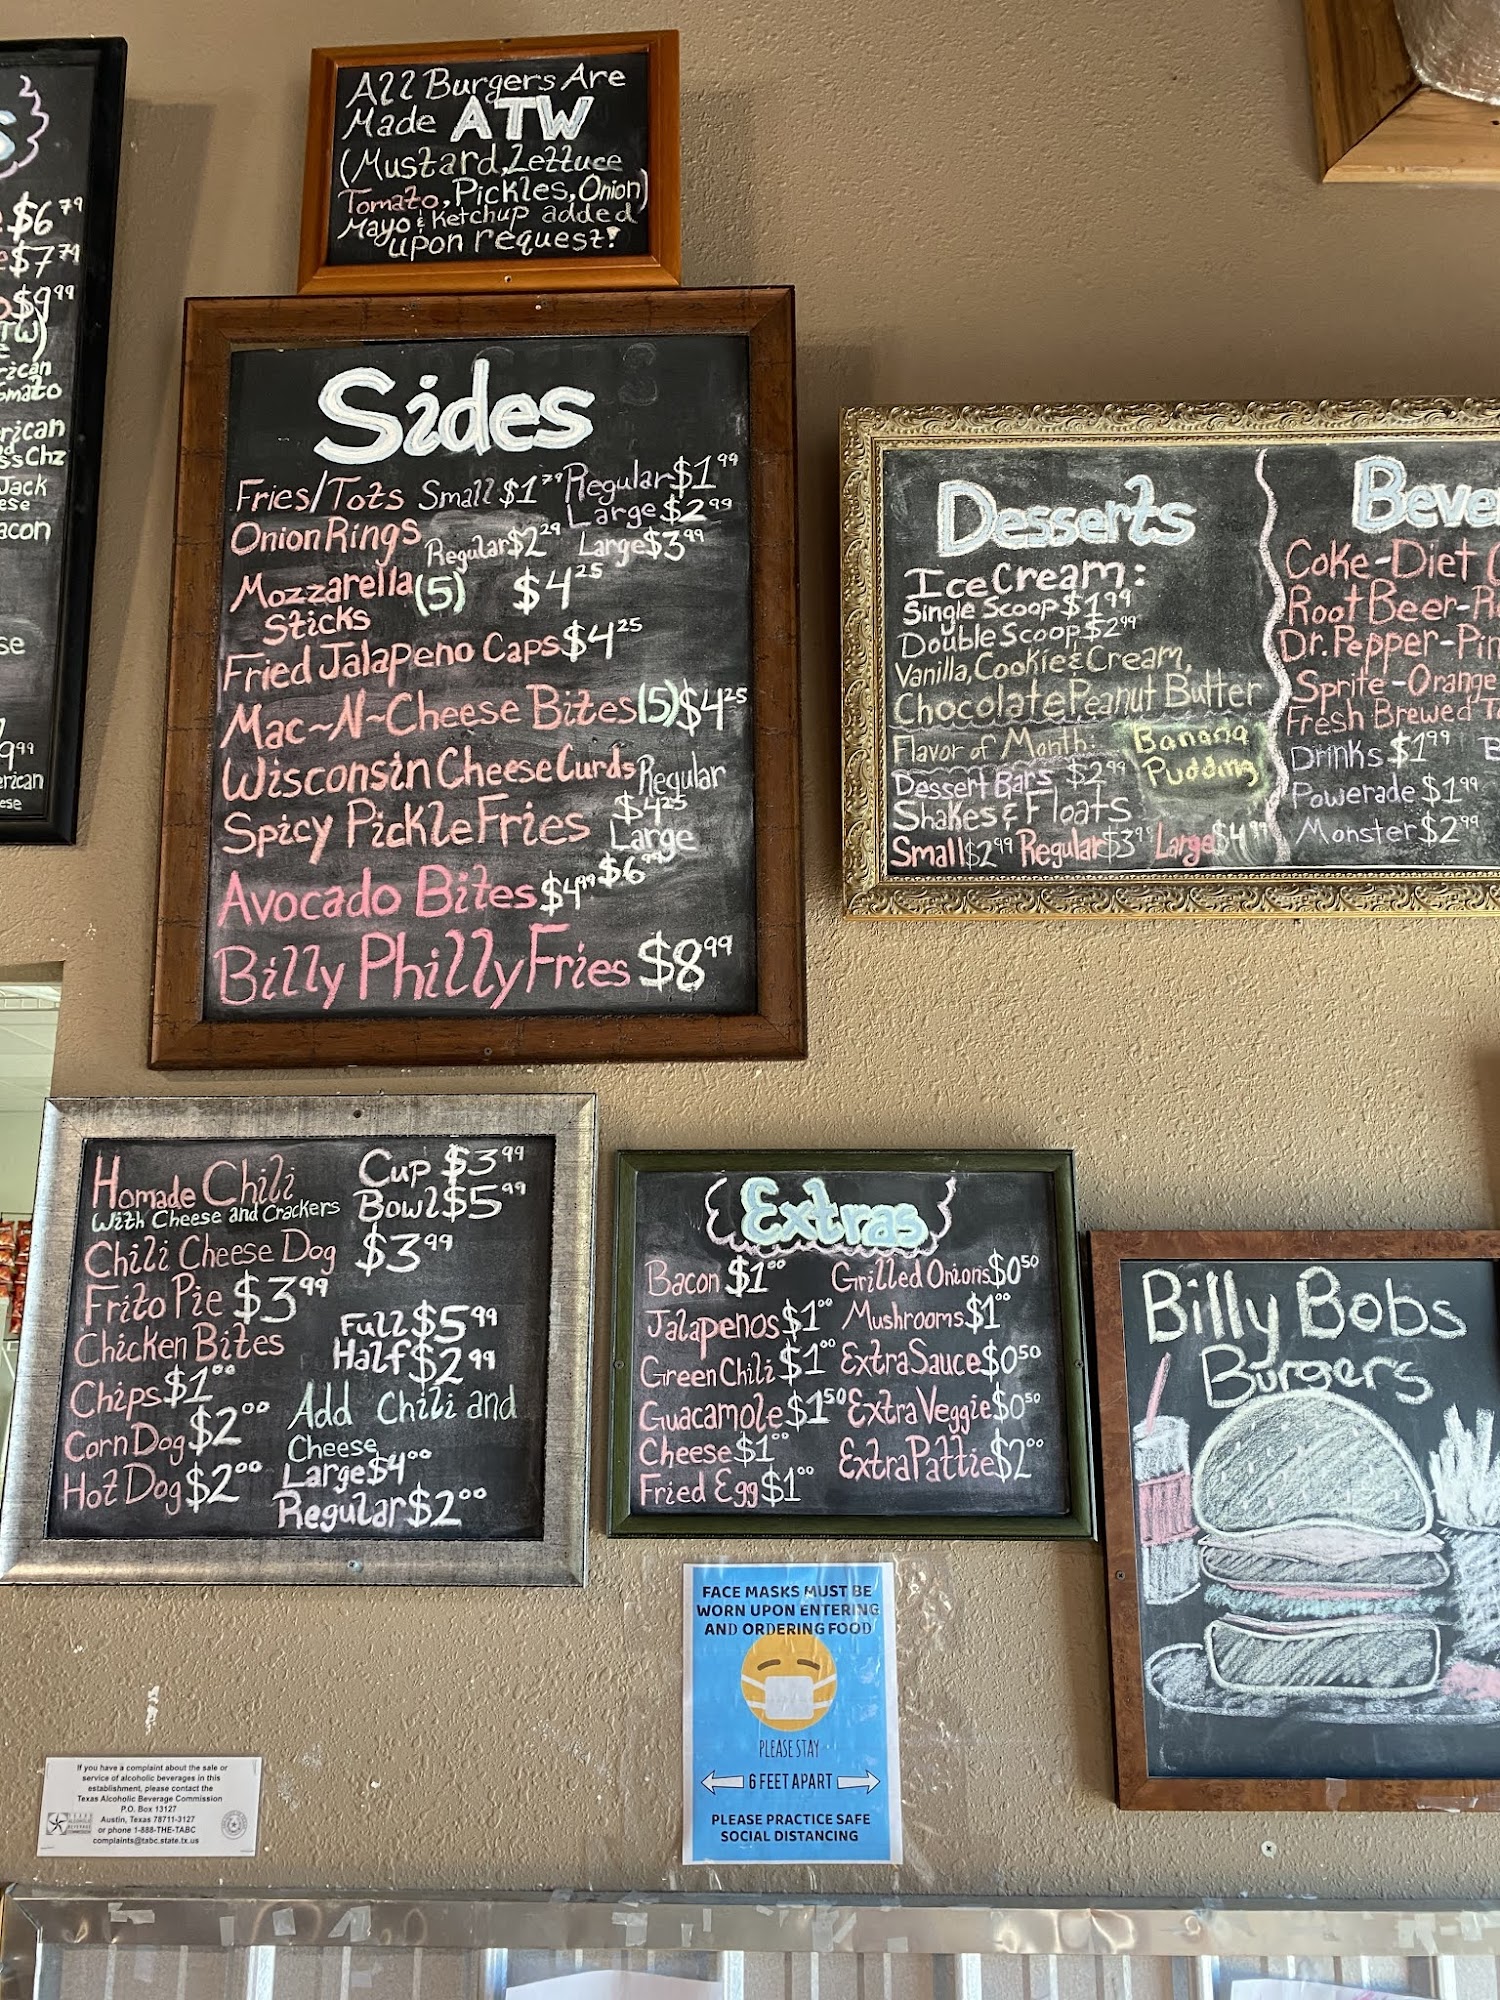 All Burgers Are
Made ATW
(Mustard, Lettuce
Tomato, Pickles, Onion)
Mayo & Ketchup added
upon request!
$6 79
$7 79
$9 99
TW)
rican
omato
rican
ssChz
Jack
ese
acon
se
9 99
erican
ese
Sides
Fries/Tots Small $1 79 Regular $1 99
Large $2 99
Onion Rings Regular $2 29 Large $3 99
Mozzarella (5) $4 25
Sticks
Fried Jalapeno Caps $4 25
Mac~N~Cheese Bites (5) $4 25
Wisconsin Cheese Curds Regular
$4 25
Spicy Pickle Fries Large
$6 99
Avocado Bites $4 99
Billy Philly Fries $8 99
Desserts
Ice Cream:
Single Scoop $1 99
Double Scoop $2 99
Vanilla, Cookie & Cream,
Chocolate Peanut Butter
Flavor of Month: Banana
Pudding
Dessert Bars $2 99
Shakes & Floats
Small $2 99 Regular $3 99 Large $4 99
Beve
Coke-Diet
Root Beer-R
Dr. Pepper-Pin
Sprite-Orange
Fresh Brewed T
Drinks $1 99
Powerade $1 99
Monster $2 99
Homade Chili Cup $3 99
With Cheese and Crackers Bowl $5 99
Chili Cheese Dog $3 99
Frito Pie $3 99
Chicken Bites Full $5 99
Half $2 99
Chips $1 00
Corn Dog $2 00
Hot Dog $2 00
Add Chili and
Cheese
Large $4 00
Regular $2 00
Extras
Bacon $1 00 Grilled Onions $0 50
Jalapenos $1 00 Mushrooms $1 00
Green Chili $1 00 Extra Sauce $0 50
Guacamole $1 50 Extra Veggie $0 50
Cheese $1 00 Extra Pattie $2 00
Fried Egg $1 00
Billy Bobs
Burgers
FACE MASKS MUST BE
WORN UPON ENTERING
AND ORDERING FOOD
PLEASE STAY
6 FEET APART
PLEASE PRACTICE SAFE
SOCIAL DISTANCING
If you have a complaint about the sale or
service of alcoholic beverages in this
establishment, please contact the
Texas Alcoholic Beverage Commission
P.O. Box 13127
Austin, Texas 78711-3127
or phone 1-888-THE-TABC
complaints@tabc.state.tx.us